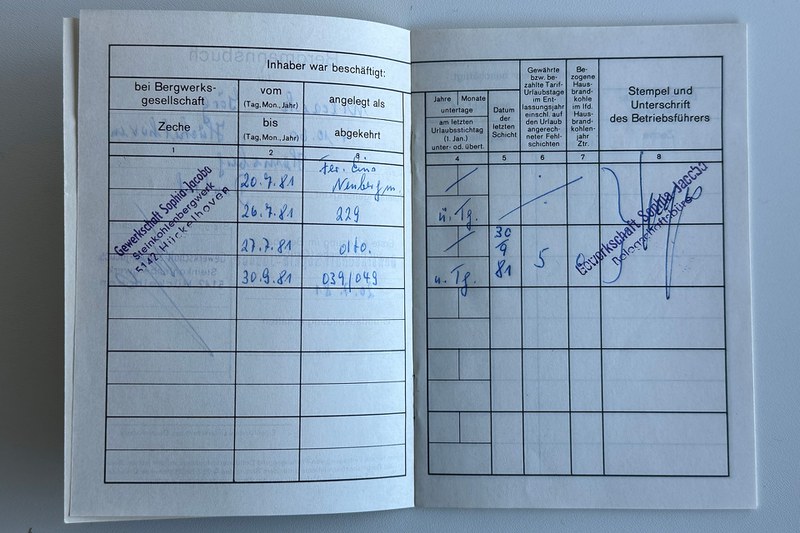 Inhaber war beschäftigt:
bei Bergwerks-
gesellschaft
Zeche
vom
(Tag, Mon., Jahr)
bis
(Tag, Mon., Jahr)
angelegt als
abgekehrt
1
2
3
Gewerkschaft Sophia Jacoba
Steinkohlenbergwerk
5142 Hückelhoven
20.7.81
26.7.81
229
27.7.81
dto.
30.9.81
039/049
Jahre Monate
untertage
am letzten
Urlaubsstichtag
(1. Jan.)
unter- od. übert.
Datum
der
letzten
Schicht
Gewährte
bzw. be-
zahlte Tarif-
Urlaubstage
im Ent-
lassungsjahr
einschl. auf
den Urlaub
angerech-
neter Fehl-
schichten
Be-
zogene
Haus-
brand-
kohle
im lfd.
Haus-
brand-
kohlen-
jahr
Ztr.
Stempel und
Unterschrift
des Betriebsführers
4
5
6
7
8
ü. Tg.
u. Tg.
30
9
81
5
Gewerkschaft Sophia Jacoba